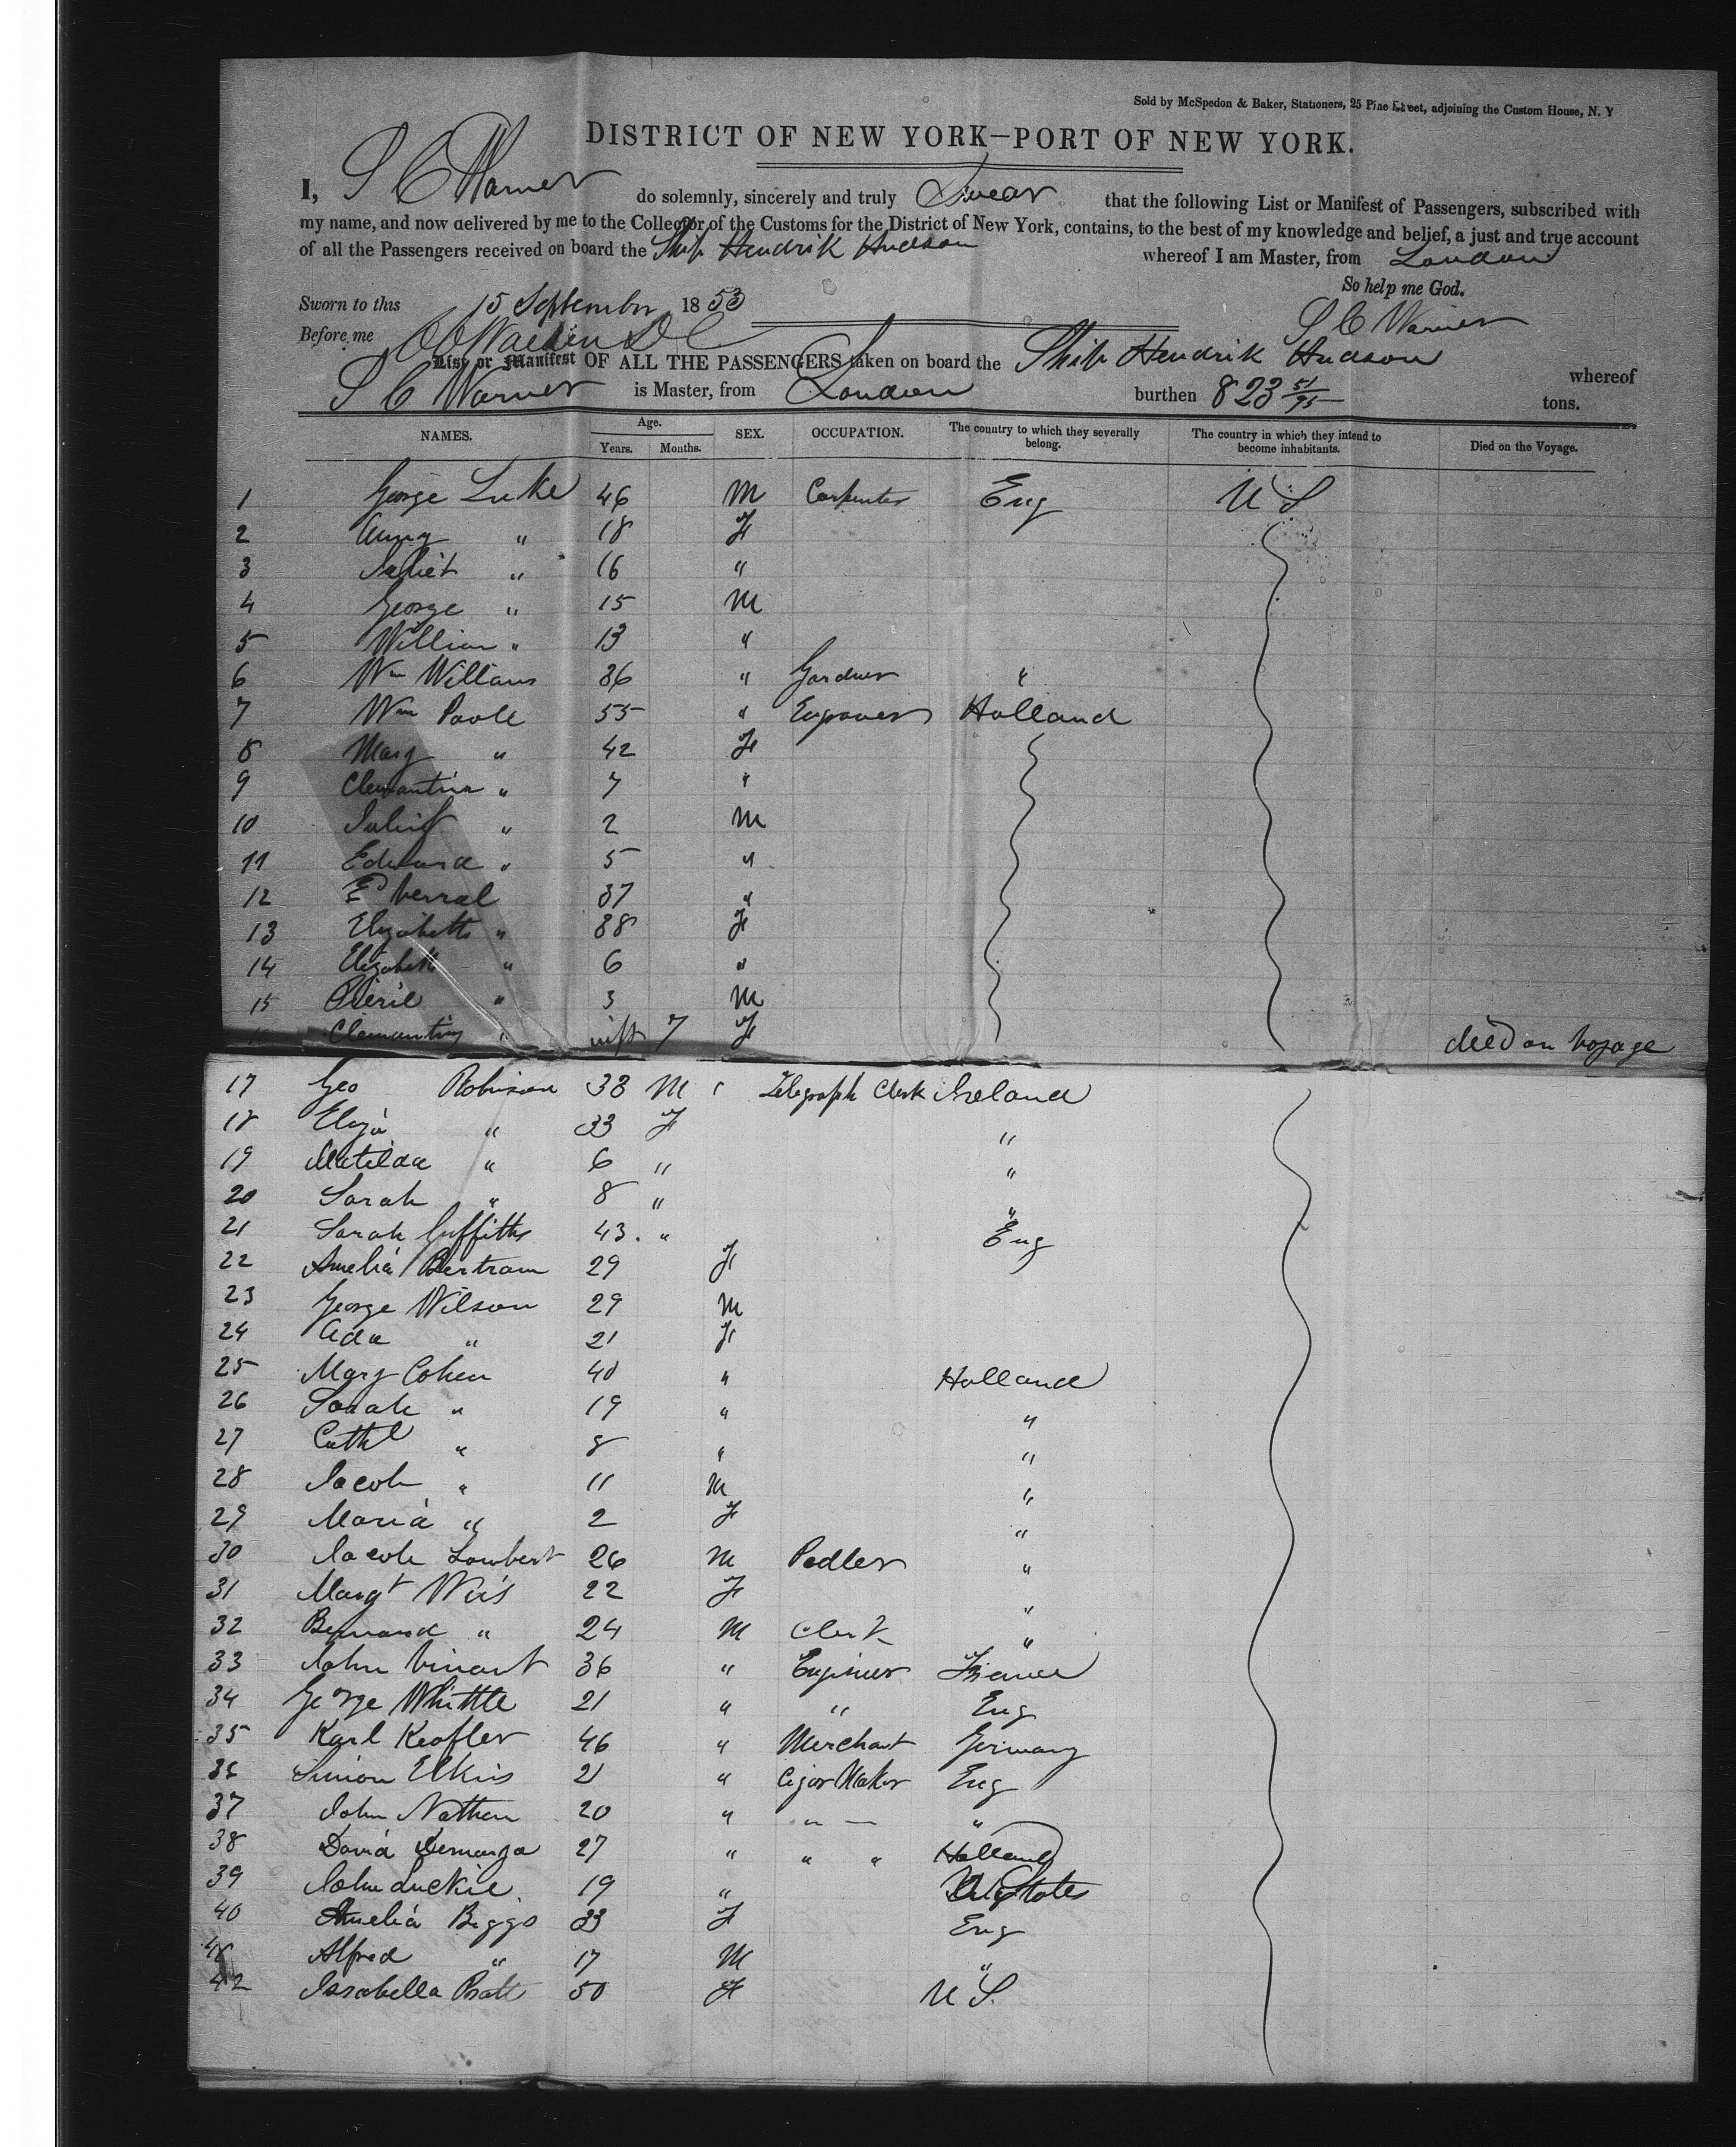 Sold by McSpedon & Baker, Stationers, 25 Pine Street, adjoining the Custom House, N. Y
DISTRICT OF NEW YORK—PORT OF NEW YORK.
I, S C Warner do solemnly, sincerely and truly Swear that the following List or Manifest of Passengers, subscribed with
my name, and now delivered by me to the Collector of the Customs for the District of New York, contains, to the best of my knowledge and belief, a just and true account
of all the Passengers received on board the Ship Hendrik Hudson whereof I am Master, from London
So help me God.
Sworn to this 15 September 1853
Before me S C Warner
List or Manifest OF ALL THE PASSENGERS taken on board the Ship Hendrik Hudson whereof
S C Warner is Master, from London burthen 823 51/95 tons.
NAMES. Age. Years. Months. SEX. OCCUPATION. The country to which they severally belong. The country in which they intend to become inhabitants. Died on the Voyage.
1 George Luke 46 M Carpenter Eng U S
2 " 18 F
3 " 16 "
4 George " 15 M
5 William " 13 "
6 Wm Willams 36 " Gardner "
7 Wm Poole 55 " Engraver Holland
8 Mary " 42 F
9 Clemantina " 7 "
10 " 2 M
11 Edward " 5 "
12 E Verral 37 "
13 Elizabeth " 38 F
14 Elizabeth " 6 "
15 " 3 M
16 " inft 7 F died on voyage
17 Geo Robinson 38 M " Telegraph Clerk Ireland
18 Eliza " 33 F "
19 Matilda " 6 " "
20 Sarah " 8 " "
21 Sarah Griffiths 43. " Eng
22 Amelia Bertram 29 F
23 George Wilson 29 M
24 Ada " 21 F
25 Mary Cohen 40 " Holland
26 Sarah " 19 " "
27 Cathl " 8 " "
28 Jacob " 11 M "
29 Maria " 2 F "
30 Jacob Lambert 26 M Pedler "
31 Margt 22 F "
32 Bernard " 24 M Clerk "
33 John 36 " Engineer France
34 George Whittle 21 " " Eng
35 Karl 46 " Merchant Germany
36 Simon Elkins 21 " Cigar Maker Eng
37 John Nathan 20 " " — "
38 David 27 " " " Holland
39 John Luckie 19 " U States
40 Amelia Biggs 33 F Eng
41 Alfred " 17 M "
42 Issabella Pratt 50 F U S.